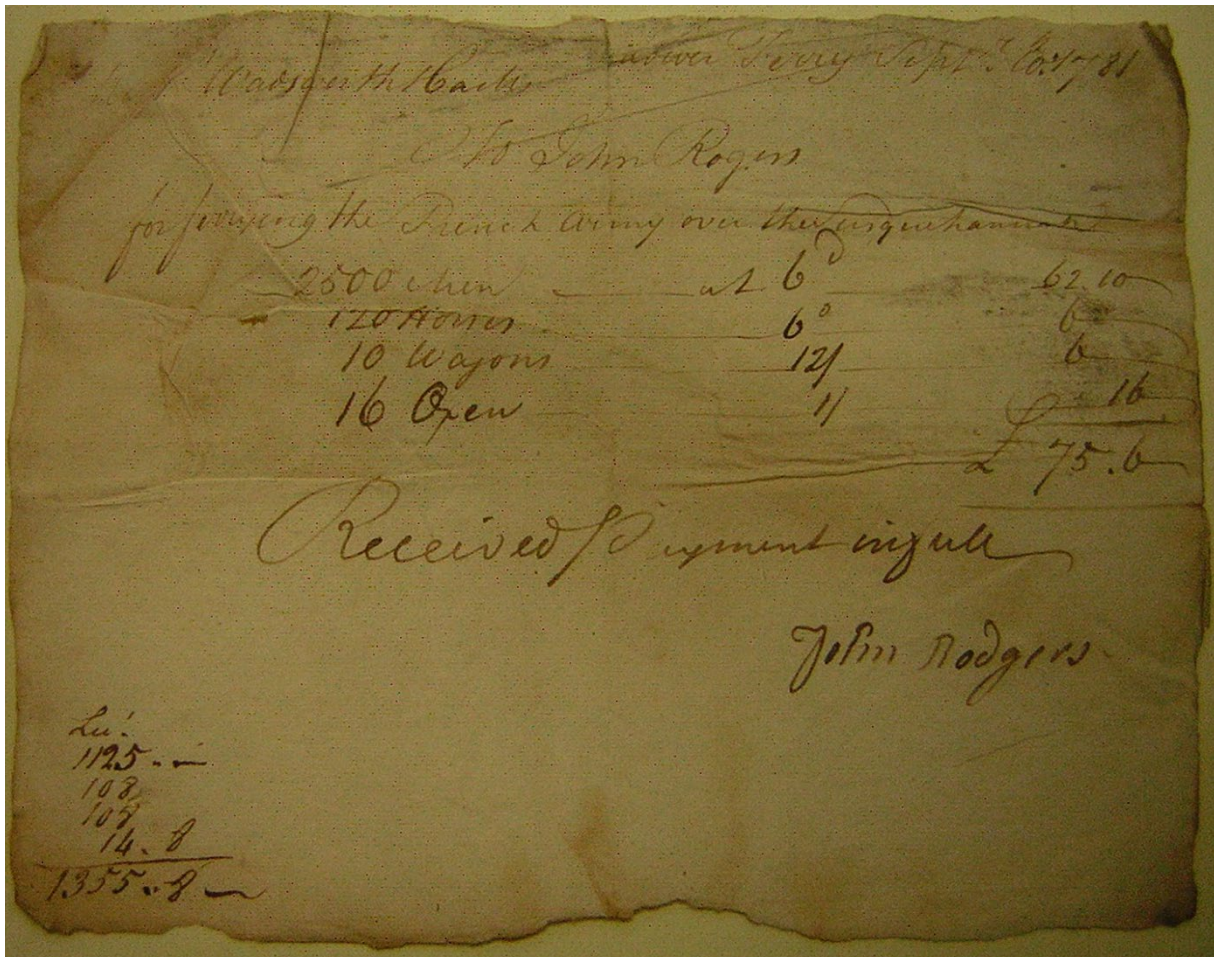 Ferry Sept. 1781
Wadsworth
To John Rogers
for ferrying the French Army over the Susquehannah
2500 Men at 6d 62.10
120 Horses 6d 6
10 Wagons 12/ 6
16 Oxen 1/ 16
£ 75.6
Received Payment in full
John Rodgers
1125
108
108
14.8
1355.8